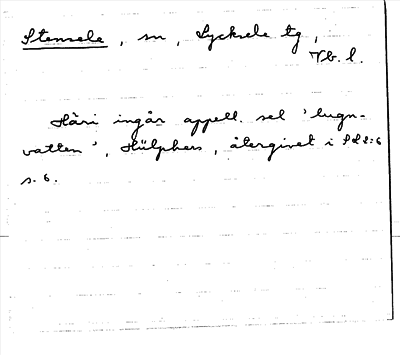 Stensele, sn, Lycksele tg,
Vb. l.
Häri ingår appell. sel 'lugn-
vatten', Hülphers, återgivet i SOL 2:6
s. 6.